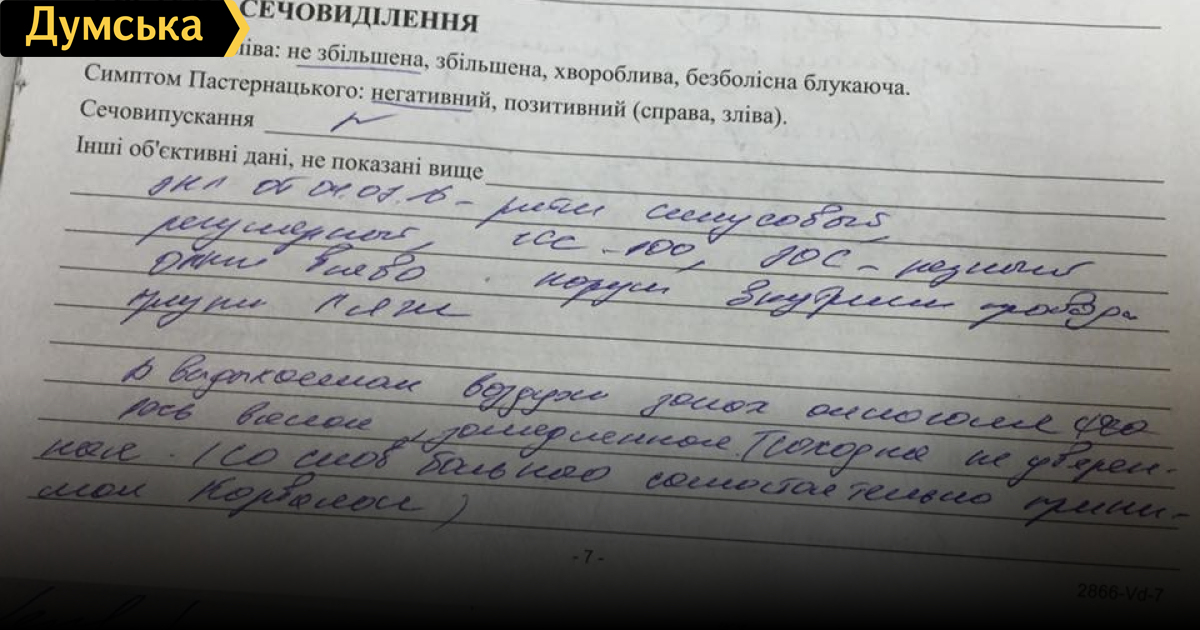 Думська
СЕЧОВИДІЛЕННЯ
ліва: не збільшена, збільшена, хвороблива, безболісна блукаюча.
Симптом Пастернацького: негативний, позитивний (справа, зліва).
Сечовипускання N
Інші об'єктивні дані, не показані вище
ЭКГ от 01.07.16 – ритм синусовый,
регулярный, ЧСС – 100, ЭОС – резный
откл влево. наруш внутрижел провод.
В выдыхаемом воздухе запах алкоголя
вялая, замедленная. Походка не уверен-
ная. (Со слов больного самостоятельно прини-
мал Корвалол)
- 7 -
2866-Vd-7